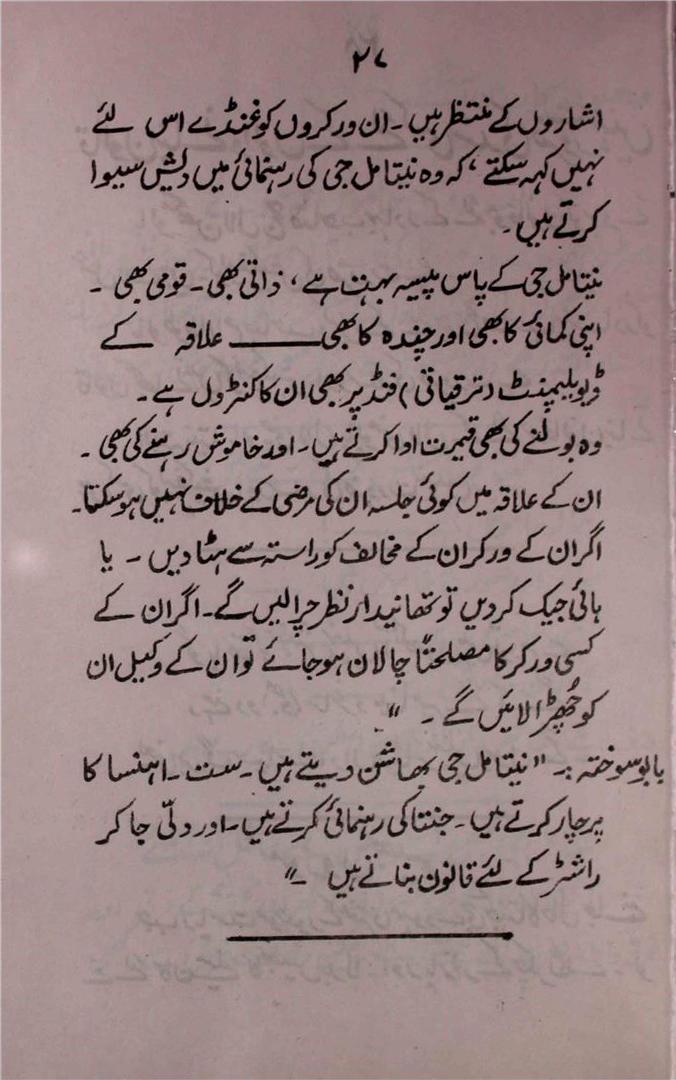 ۲۷
اشاروں کے منتظر ہیں ۔ ان ورکروں کو غنڈے اس لئے
نہیں کہہ سکتے ، کہ وہ نیتا مل جی کی رہنمائی میں دلیش سیوا
کرتے ہیں ۔
نیتا مل جی کے پاس پیسہ بہت ہے ، ذاتی بھی ۔ قومی بھی ۔
اپنی کمائی کا بھی اور چندہ کا بھی ــــــ علاقہ کے
ڈیولیپمنٹ (ترقیاتی) فنڈ پر بھی ان کا کنٹرول ہے ۔
وہ بولنے کی بھی قیمت ادا کرتے ہیں ۔ اور خاموش رہنے کی بھی ۔
ان کے علاقہ میں کوئی جلسہ ان کی مرضی کے خلاف نہیں ہو سکتا ۔
اگر ان کے ورکر ان کے مخالف کو راستہ سے ہٹا دیں ۔ یا
ہائی جیک کر دیں تو تھانیدار نظر چرا لیں گے ۔ اگر ان کے
کسی ورکر کا مصلحتاً چالان ہو جائے تو ان کے وکیل ان
کو چھڑا لائیں گے ۔ "
بابو سوختہ :۔ " نیتا مل جی بھاشن دیتے ہیں ۔ ست ۔ اہنسا کا
پرچار کرتے ہیں ۔ جنتا کی رہنمائی کرتے ہیں ۔ اور دلّی جا کر
راشٹر کے لئے قانون بناتے ہیں ۔ "